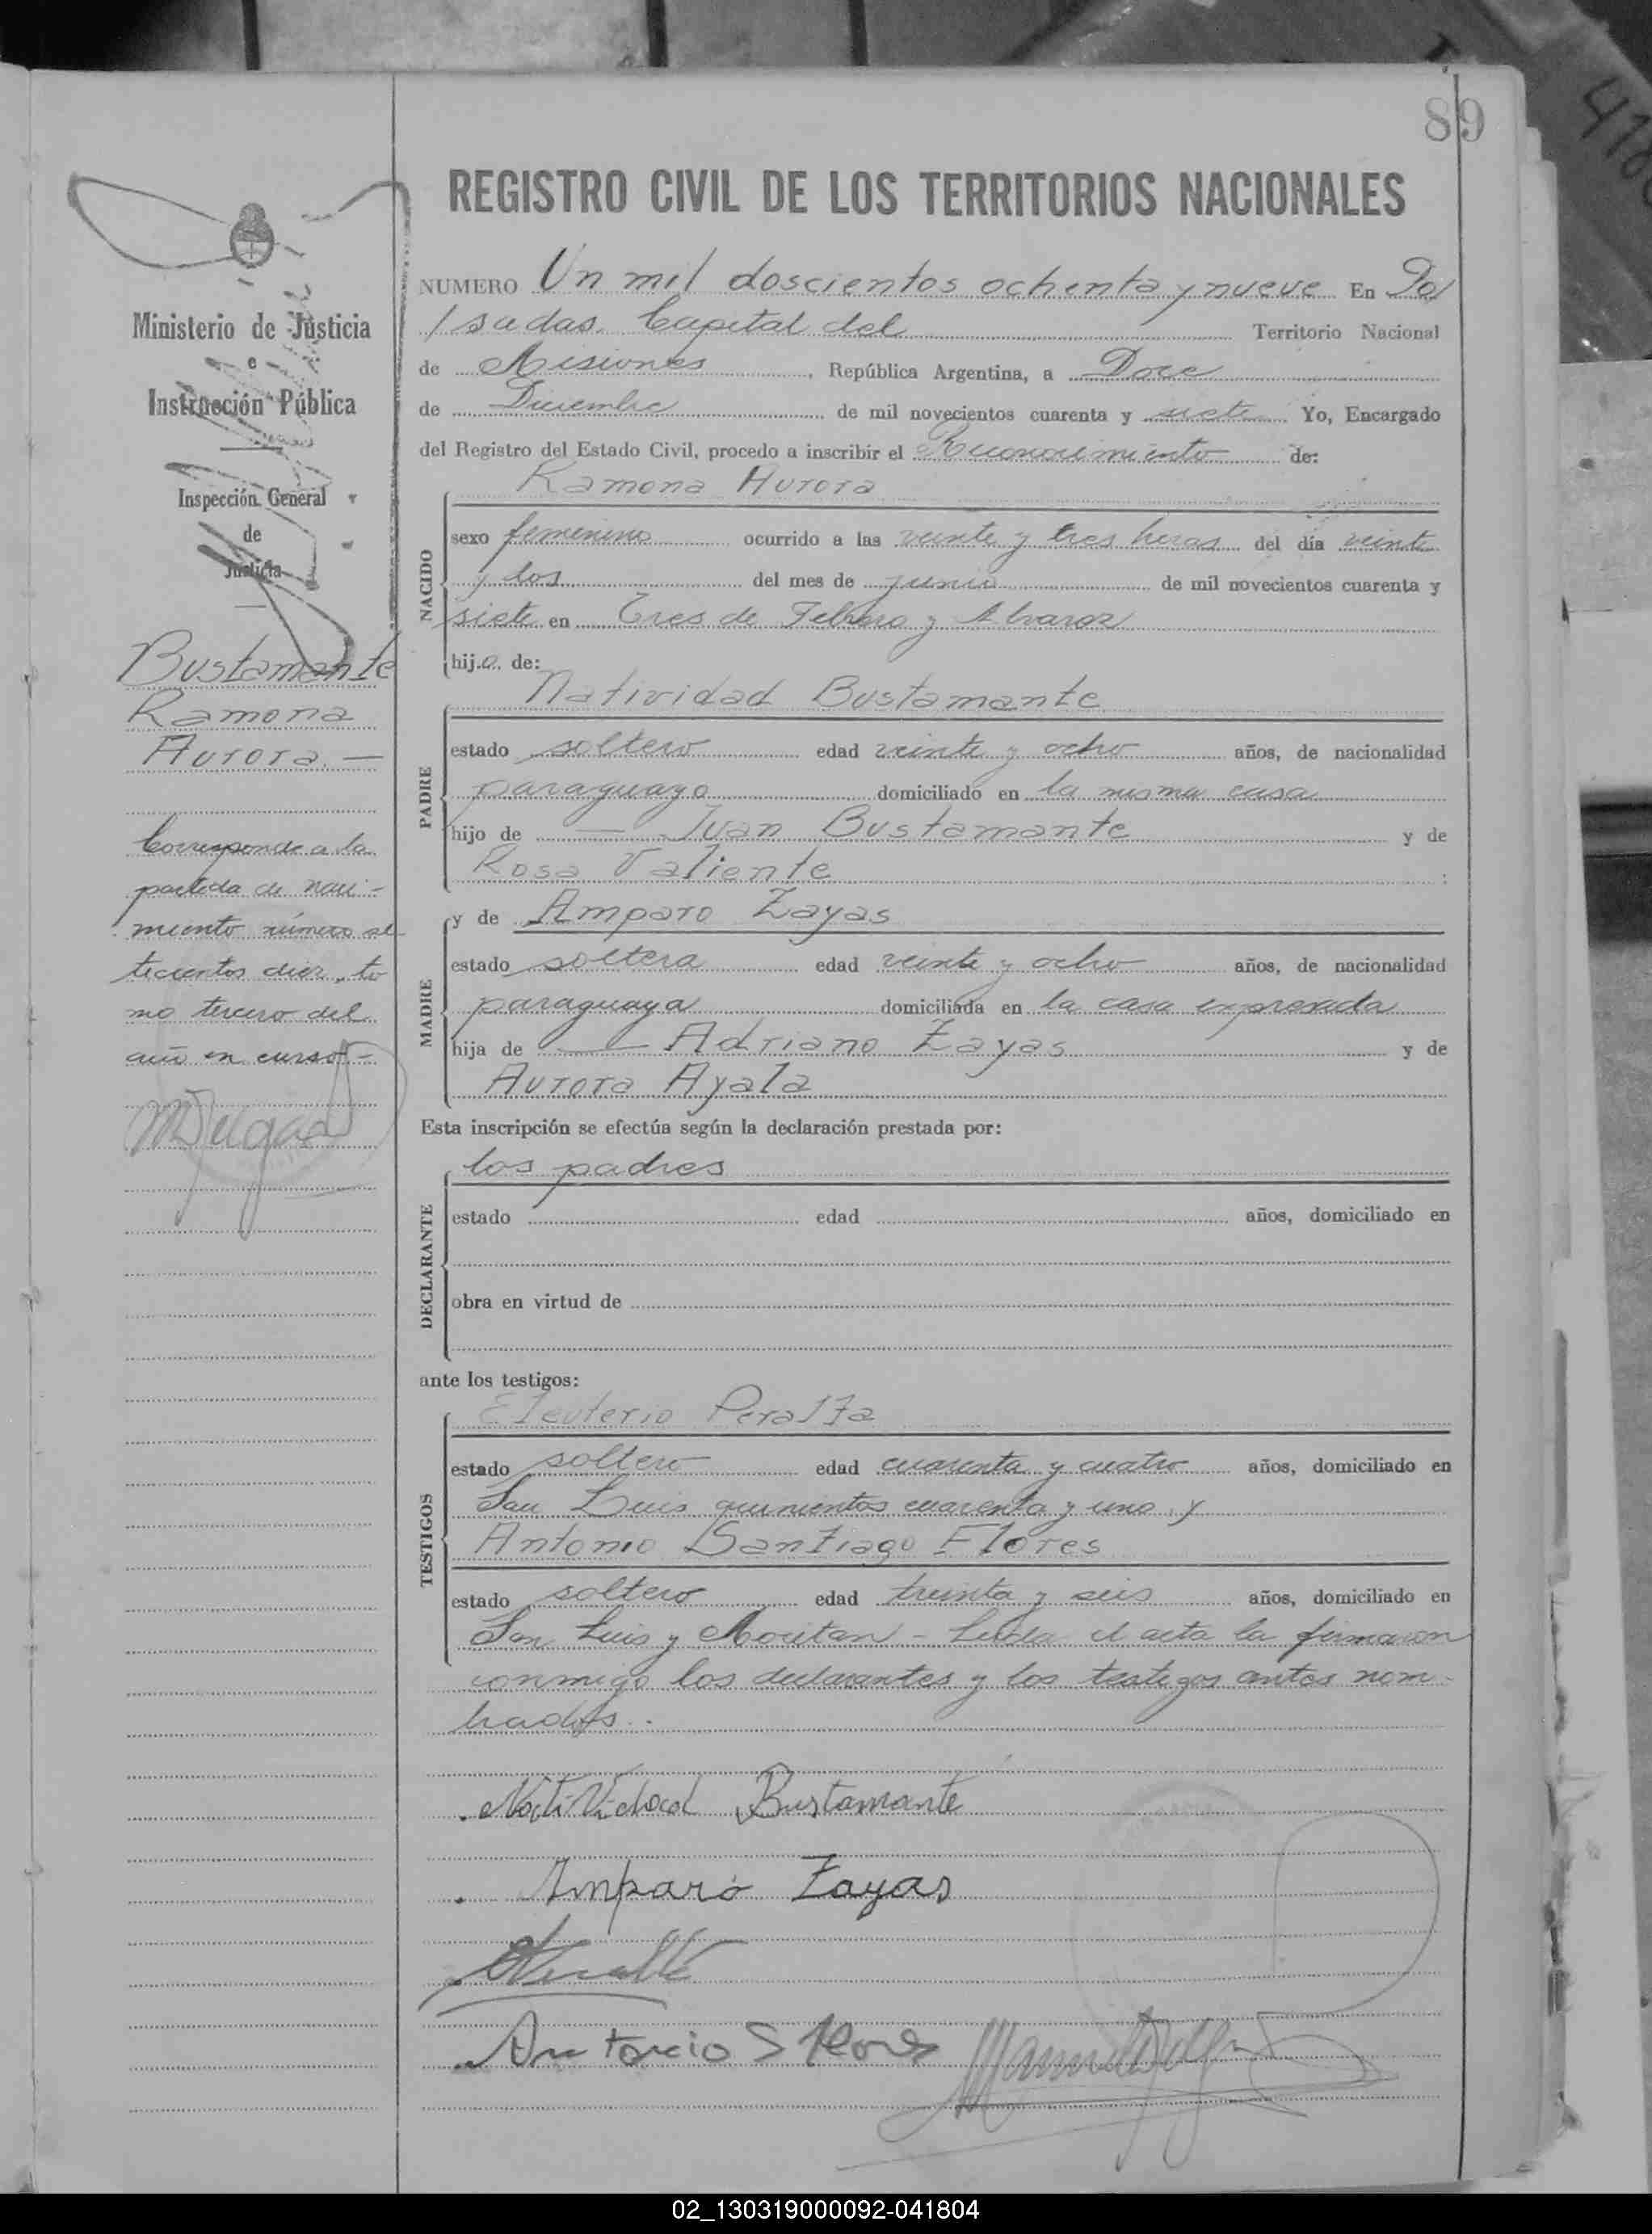 89
REGISTRO CIVIL DE LOS TERRITORIOS NACIONALES
Ministerio de Justicia
e
Instrucción Pública
Inspección General
de
Justicia
Bustamante
Ramona
Aurora. —
Corresponde a la
partida de naci-
miento número se
tecientos diez, to
mo tercero del
año en curso. -
NUMERO Un mil doscientos ochenta y nueve En Po/
/sadas. Capital del Territorio Nacional
de Misiones, República Argentina, a Doce
de Diciembre de mil novecientos cuarenta y siete Yo, Encargado
del Registro del Estado Civil, procedo a inscribir el Reconocimiento de:
Ramona Aurora
NACIDO
sexo femenino ocurrido a las veinte y tres horas del día veinte
y dos del mes de junio de mil novecientos cuarenta y
siete en Tres de Febrero y Alvarez
hij.a. de:
Natividad Bustamante
PADRE
estado soltero edad veinte y ocho años, de nacionalidad
paraguayo domiciliado en la misma casa
hijo de — Juan Bustamante y de
Rosa Valiente
y de Amparo Zayas
MADRE
estado soltera edad veinte y ocho años, de nacionalidad
paraguaya domiciliada en la casa expresada
hija de — Adriano Zayas y de
Aurora Ayala
Esta inscripción se efectúa según la declaración prestada por:
los padres
DECLARANTE
estado edad años, domiciliado en
obra en virtud de
ante los testigos:
Eleuterio Peralta
TESTIGOS
estado soltero edad cuarenta y cuatro años, domiciliado en
San Luis quinientos cuarenta y uno y
Antonio Santiago Flores
estado soltero edad treinta y seis años, domiciliado en
San Luis y Moritan - Leida el acta la firmaron
conmigo los declarantes y los testigos antes nom-
brados.
Natividad Bustamante
Amparo Zayas
Antonio S Flores
02_130319000092-041804